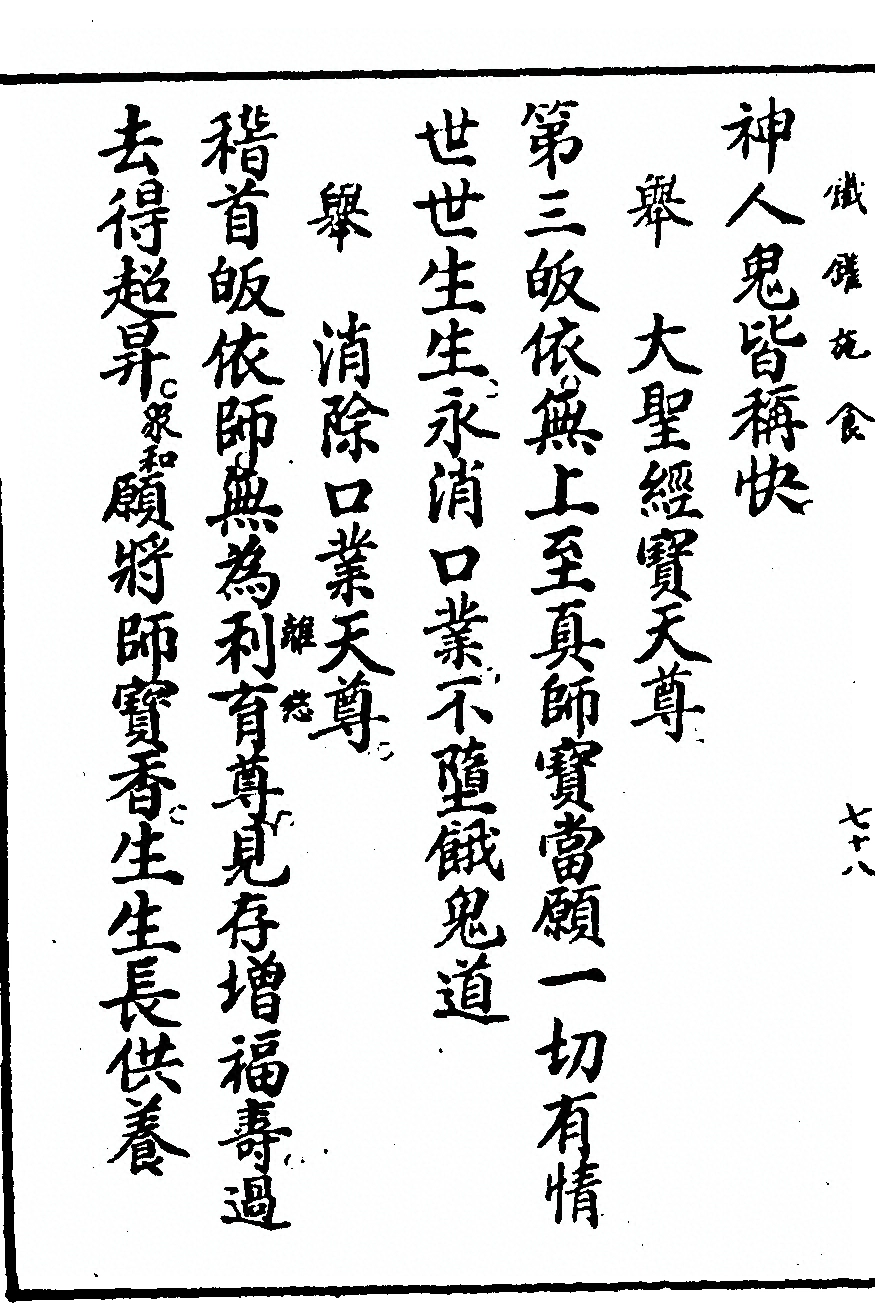 鐵鑵施食 七十八
神人鬼皆稱快
舉 大聖經寶天尊
第三皈依無上至真師寶當願一切有情
世世生生永消口業不墮餓鬼道
舉 消除口業天尊
離慾
稽首皈依師無為利育尊見存增福壽過
去得超昇。眾和願將師寶香。生生長供養